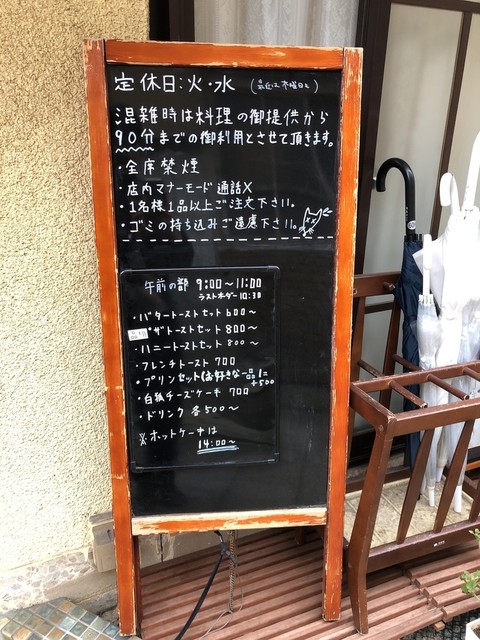 定休日:火・水 (最近は木曜日も)
混雑時は料理の御提供から
90分までの御利用とさせて頂きます。
・全席禁煙
・店内マナーモード通話X
・1名様1品以上ご注文下さい。
・ゴミの持ち込みご遠慮下さい。
午前の部 9:00〜11:00
ラストオーダー10:30
・バタートーストセット 600〜
ピザトーストセット 800〜
・ハニートーストセット 800〜
・フレンチトースト 700
・プリンセット(お好きな一品に
+500
・白狐チーズケーキ 700
・ドリンク 各500〜
※ホットケーキは
14:00〜